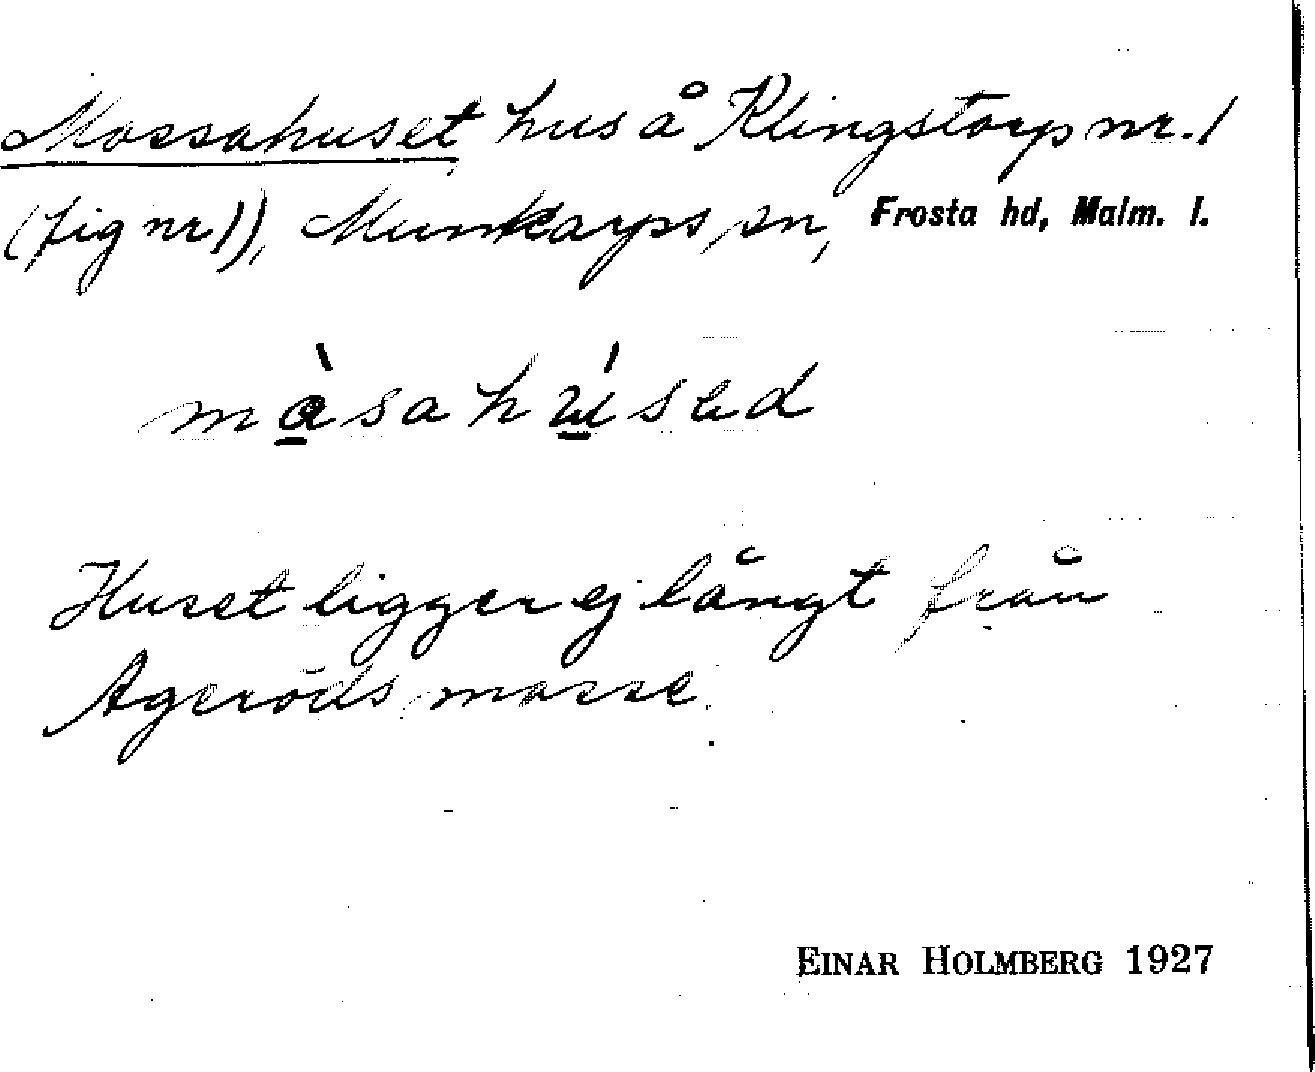 Mossahuset, hus å Klingstorp nr. 1
(fig nr 1), Munkarps sn, Frosta hd, Malm. l.
måsahu̇sed
Huset ligger ej långt från
Ageröds mosse.
EINAR HOLMBERG 1927